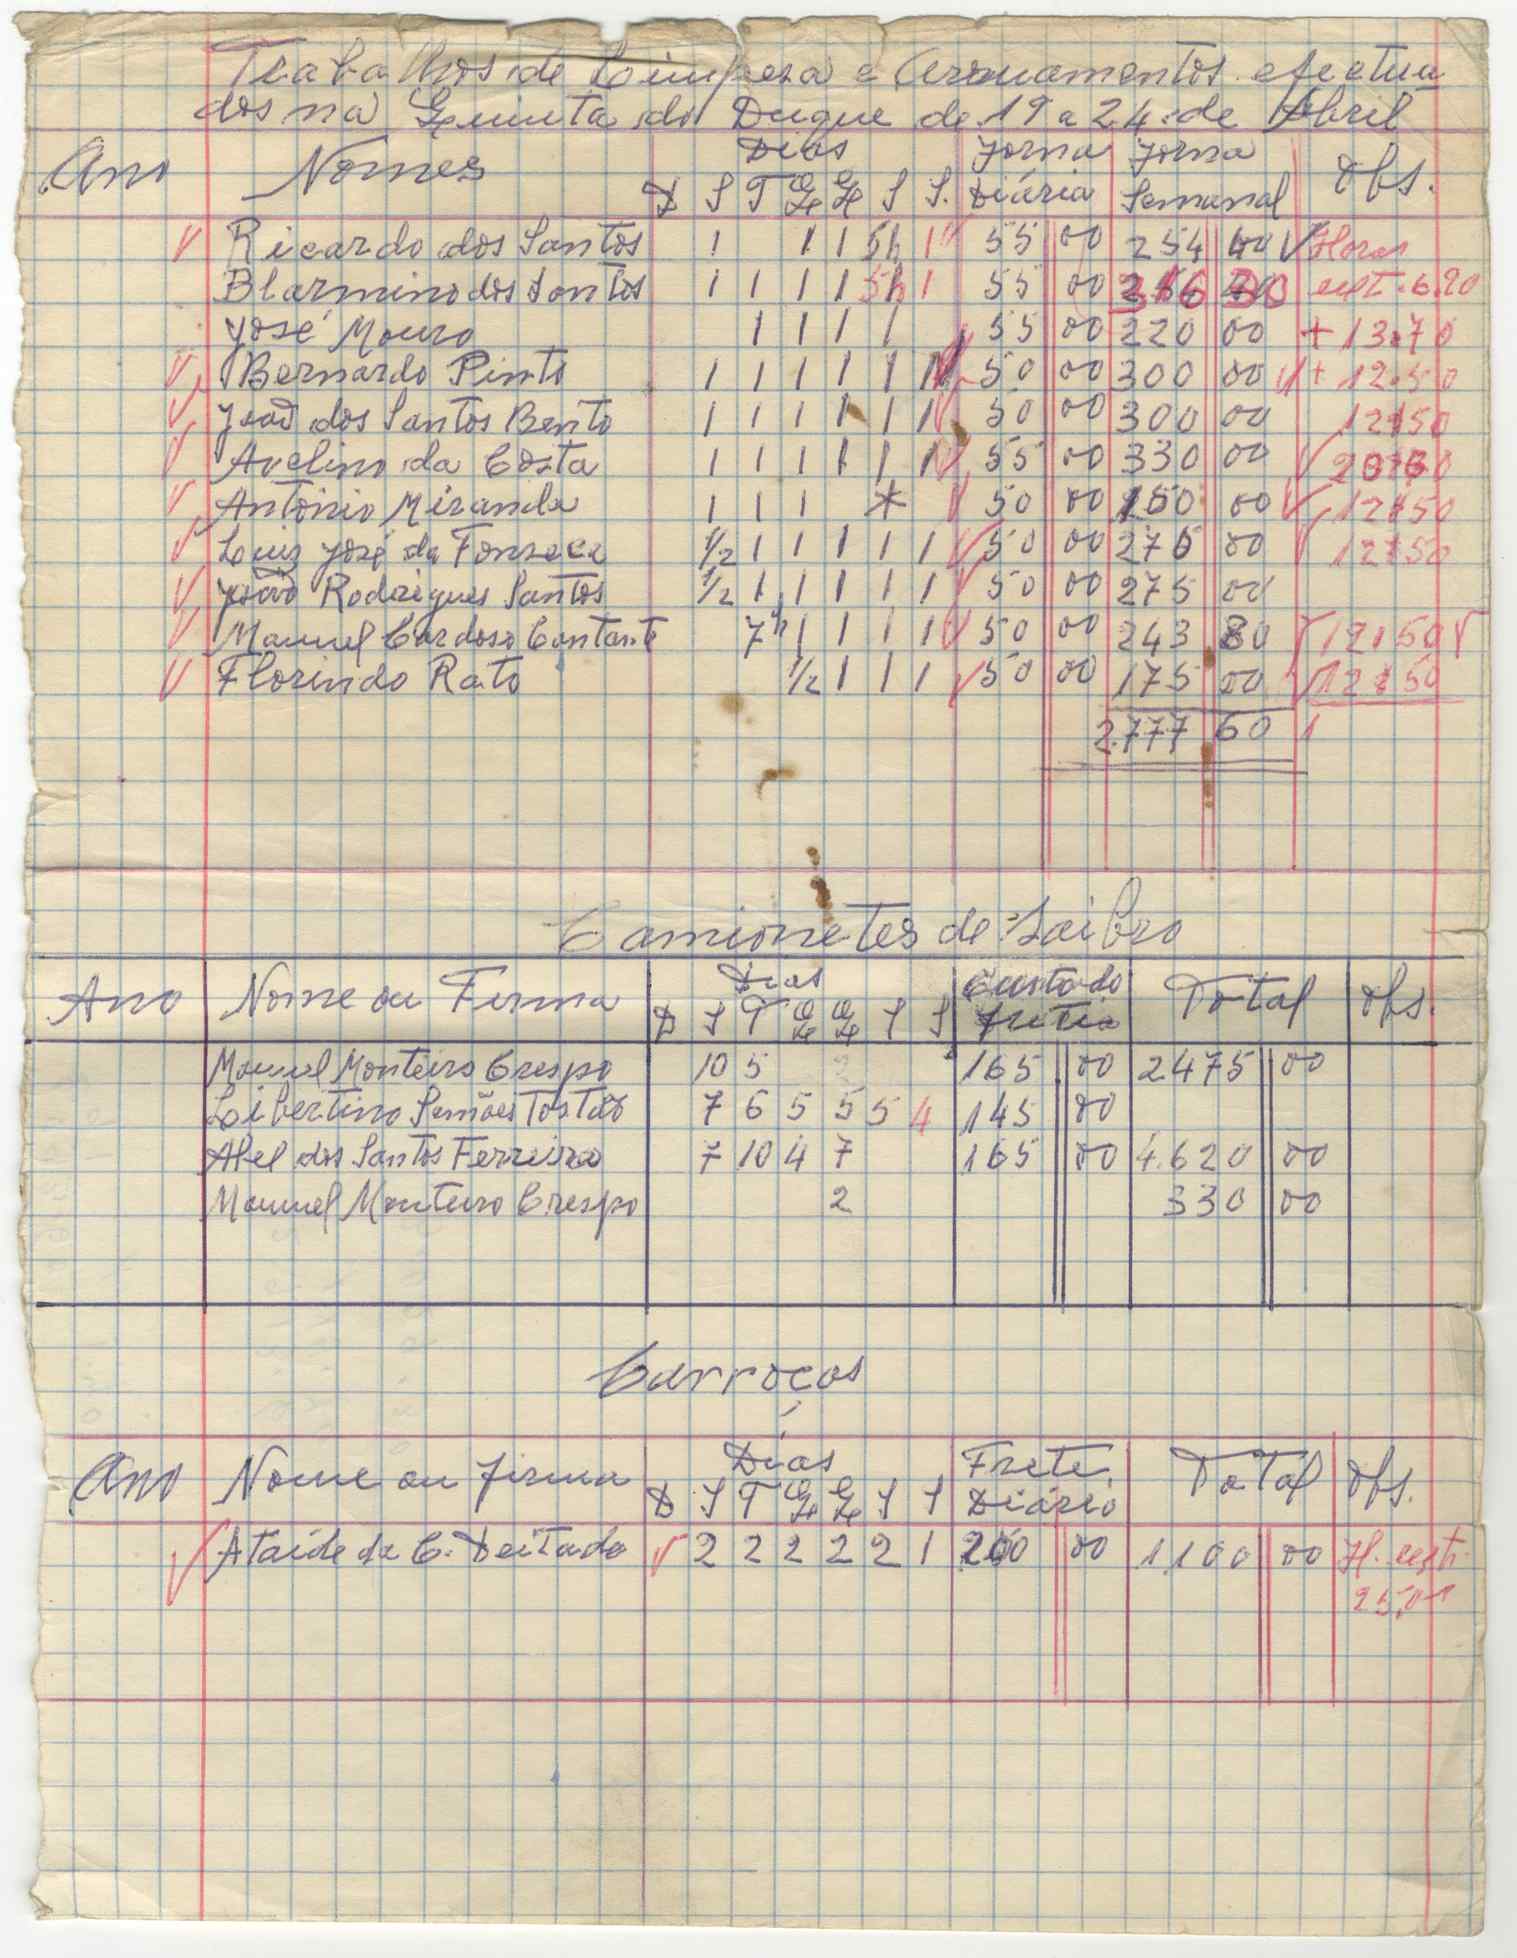 Trabalhos de Limpesa e Arruamentos efectua
dos na Quinta do Duque de 19 a 24 de Abril
Ano Nomes Dias Jorna Jorna Obs.
D S T Q Q S S. Diária Semanal
Ricardo dos Santos 1 1 1 5h 1 55 00 254 40 Horas
Blarmino dos Santos 1 1 1 1 5h 1 55 00 316 30 est. 6.20
José Mouro 1 1 1 1 55 00 220 00 + 13.70
Bernardo Pinto 1 1 1 1 1 1 50 00 300 00 + 12.50
João dos Santos Bento 1 1 1 1 1 1 50 00 300 00 12.50
Avelino da Costa 1 1 1 1 1 1 55 00 330 00
António Miranda 1 1 1 * 50 00 150 00 12.50
Luiz José da Fonseca 1/2 1 1 1 1 1 50 00 275 00 12.50
João Rodrigues Santos 1/2 1 1 1 1 1 50 00 275 00
Manuel Cardoso Contante 7h 1 1 1 1 50 00 243 80 12.50
Florindo Rato 1/2 1 1 1 50 00 175 00 12.50
2.777 60
Camionetes de Saibro
Ano Nome ou Firma Dias Custo do Total Obs.
D S T Q Q S S frete
Manuel Monteiro Crespo 10 5 165 00 2475 00
Libertino Simões Tostão 7 6 5 5 5 4 145 00
Abel dos Santos Ferreira 7 10 4 7 165 00 4.620 00
Manuel Monteiro Crespo 2 330 00
Carroças
Ano Nome ou firma Dias Frete Total Obs.
D S T Q Q S S Diário
Ataíde da C. Deitado 2 2 2 2 2 1 200 00 1.100 00 H. est.
25,00